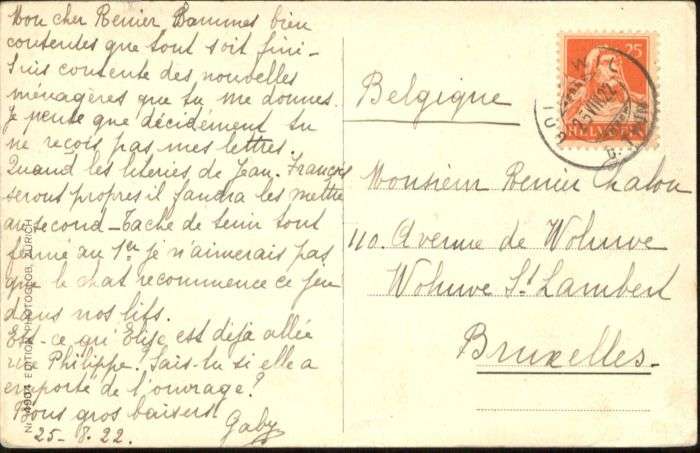 Mon cher Renier Sommes bien
contentes que tout soit fini -
Suis contente des nouvelles
ménagères que tu me donnes.
Je pense que décidément tu
ne reçois pas mes lettres.
Quand les literies de Jean. François
seront propres il faudra les mettre
au second - Tâche de tenir tout
fermé au 1er je n'aimerais pas
que le chat recommence ce jeu
dans nos lits.
Est-ce qu'Elise est déjà allée
voir Philippe? Sais-tu si elle a
emporté de l'ouvrage?
Bons gros baisers
Gaby
25-8.22.
No EDITION PHOTOGLOB, ZÜRICH
25
HELVETIA
22
Belgique
Monsieur Renier Chalon
110. Avenue de Woluwe
Woluwe St Lambert
Bruxelles.